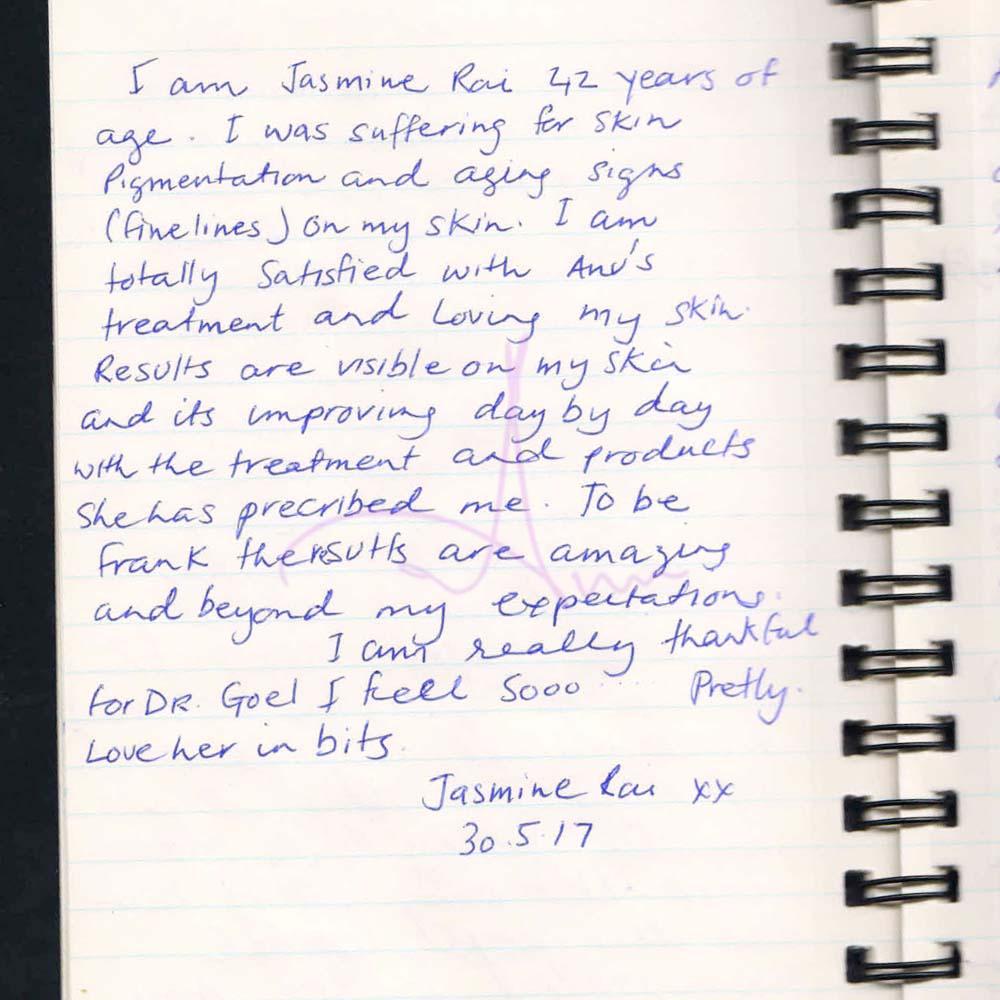 I am Jasmine Rai 42 years of
age. I was suffering for skin
Pigmentation and aging signs
(finelines) on my skin. I am
totally Satisfied with Anu's
treatment and Loving my skin.
Results are visible on my skin
and its improving day by day
with the treatment and products
She has precribed me. To be
frank the results are amazing
and beyond my expectations.
I am really thankful
for DR. Goel I feel Sooo ..... Pretly.
Love her in bits.
Jasmine Rai xx
30.5.17